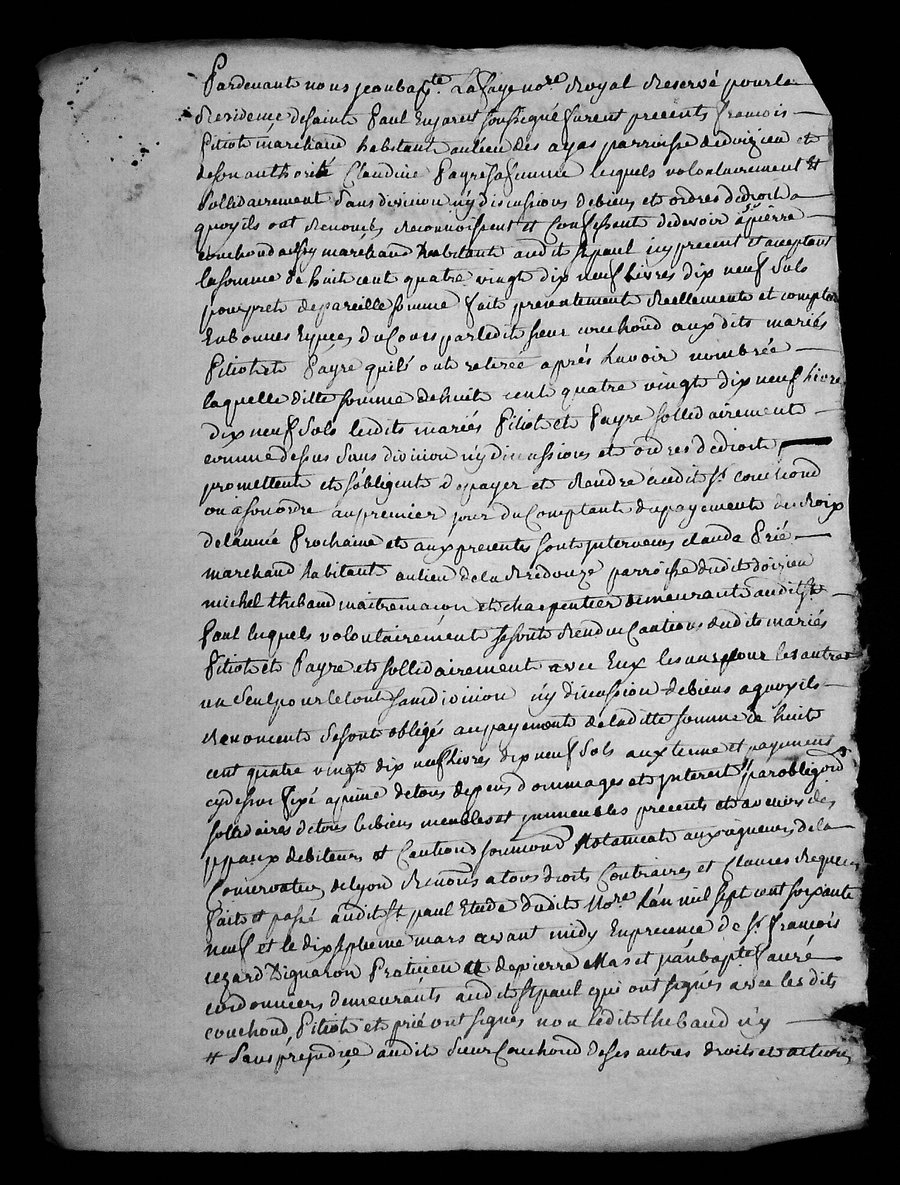 Pardevant nous jeanbapte. Lafaye nore. Royal Reservé pour la
Residence de sainte Paul En jarest soussigné furent presents françois
Pitiot marchand habitant au lieu des ayas parroisse de doizieu et
de son authorité Claudine Payre sa femme lesquels volontairement #
sollidairement sans division n'y discussions de biens et ordres de droit a
quoy ils ont Renoncés Reconnoissent et Confessent de devoir a sr. pierre
couchond marchand habitant audit st paul icy present et aceptant
la somme de huit cent quatre vingt dix neuf Livres dix neuf sols
pour prêt de pareille somme fait presentement Reellement et comptant
En bonnes Espèces du Cours par ledit sieur couchond aux dits mariés
Pitiot et Payre qu'ils ont retirée après Lavoir nombrée
laquelle ditte somme de huit cent quatre vingt dix neuf Livres
dix neuf sols lesdits mariés Pitiot et Payre sollidairement
comme dessus sans division n'y discussions et ordres de droit
promettent et s'obligent de payer et Rendre audit sr. couchond
ou a son ordre au premier jour du Comptant du payement des Roix
de l'année Prochaine et aux presentes sont intervenus claude Prié
marchand habitant au lieu de la parroisse dudit doizieu
michel thebaud maitre maçon et charpentier demeurant audit st
Paul lesquels volontairement se sont Rendu Cautions desdits mariés
Pitiot et Payre et sollidairement avec Eux les uns pour les autres
un seul pour le tout sans division n'y discussion de biens a quoy ils
Renoncent se sont obligés au payement de la ditte somme de huit
cent quatre vingt dix neuf Livres dix neuf sols aux terme et payement
cy dessus fixé a peine de tous depens dommages et interest par oblig.ons
sollidaires de tous les biens meubles et immeubles presents et avenirs des
ppaux debiteurs et Cautions soumond Notament aux rigueurs de la
Conservation de lyon Renons a tous droits Contraires et Clauses Requises
fait et passé audit st paul Etude dudit Nore. L'an mil sept cent soixante
neuf et le dix septieme mars avant midy En presence de sr. françois
cezard Praticien et de pierre Mas et jean bapte fauré
cordonniers demeurants audit st paul qui ont signés avec les dits
couchond, Pitiot et prié ont signés non ledit thebaud n'y
# sans préjudice audit sieur Couchond de ses autres droits et actions